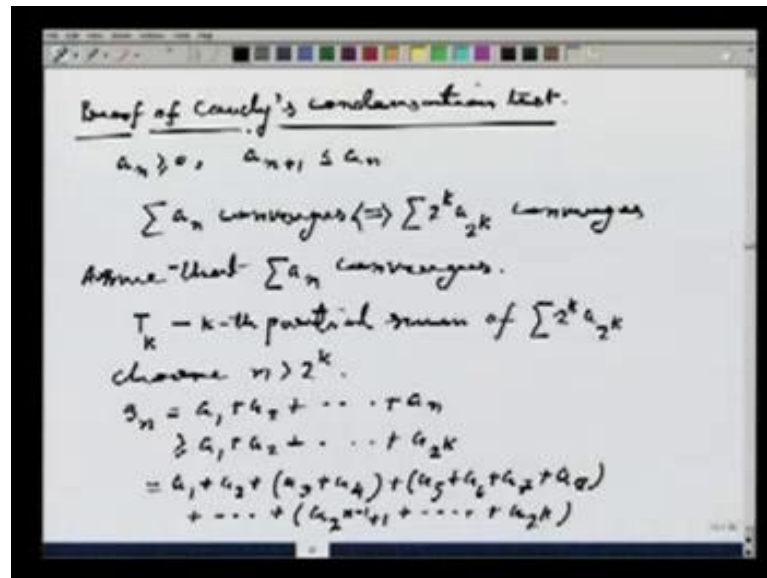 Proof of Cauchy's condensation test.
aₙ ≥ 0, aₙ₊₁ ≤ aₙ
∑ aₙ converges ⟺ ∑ 2^k a_{2^k} converges
Assume that ∑ aₙ converges.
T_k – k-th partial sum of ∑ 2^k a_{2^k}
choose n > 2^k.
Sₙ = a₁ + a₂ + ... + aₙ
≥ a₁ + a₂ + . . . + a_{2^k}
= a₁ + a₂ + (a₃ + a₄) + (a₅ + a₆ + a₇ + a₈)
+ --- + (a_{2^{k-1}+1} + ---- + a_{2^k})